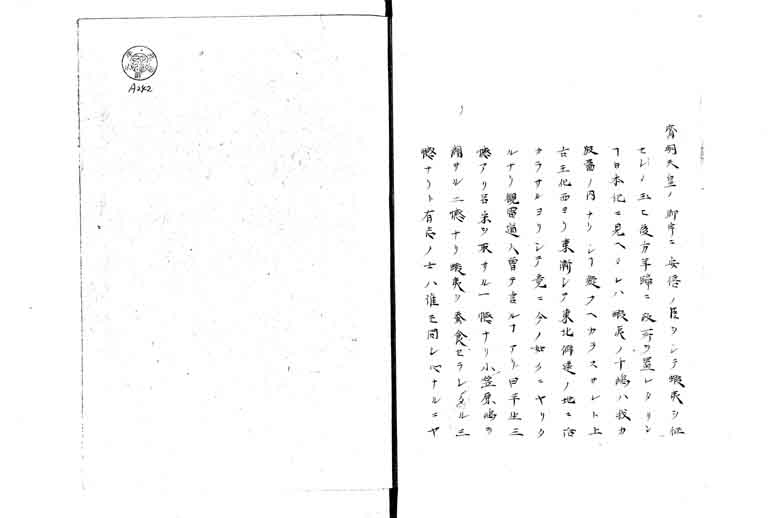 齊明天皇ノ御宇ニ安倍ノ臣ヲシテ蝦夷ヲ征
セシメ玉ヒ後方羊蹄ニ政所ヲ置レタリシ
ヿ日本紀ニ見ヘタレハ蝦夷ノ千嶋ハ我カ
版圖ノ内ナリシヿ疑フヘカラスサレト上
古王化西ヨリ東漸シテ東北僻遠ノ地ニ洽
カラサルヨリシテ竟ニ今ノ如クニナリタ
ルナリ觀雷道人曽テ言ルヿアリ曰半生三
憾アリ呂宋ヲ取サル一憾ナリ小笠原嶋ヲ
開サル二憾ナリ蝦夷ヲ蚕食セラレタル三
憾ナリト有志ノ士ハ誰モ同シ心ナルニヤ
A242